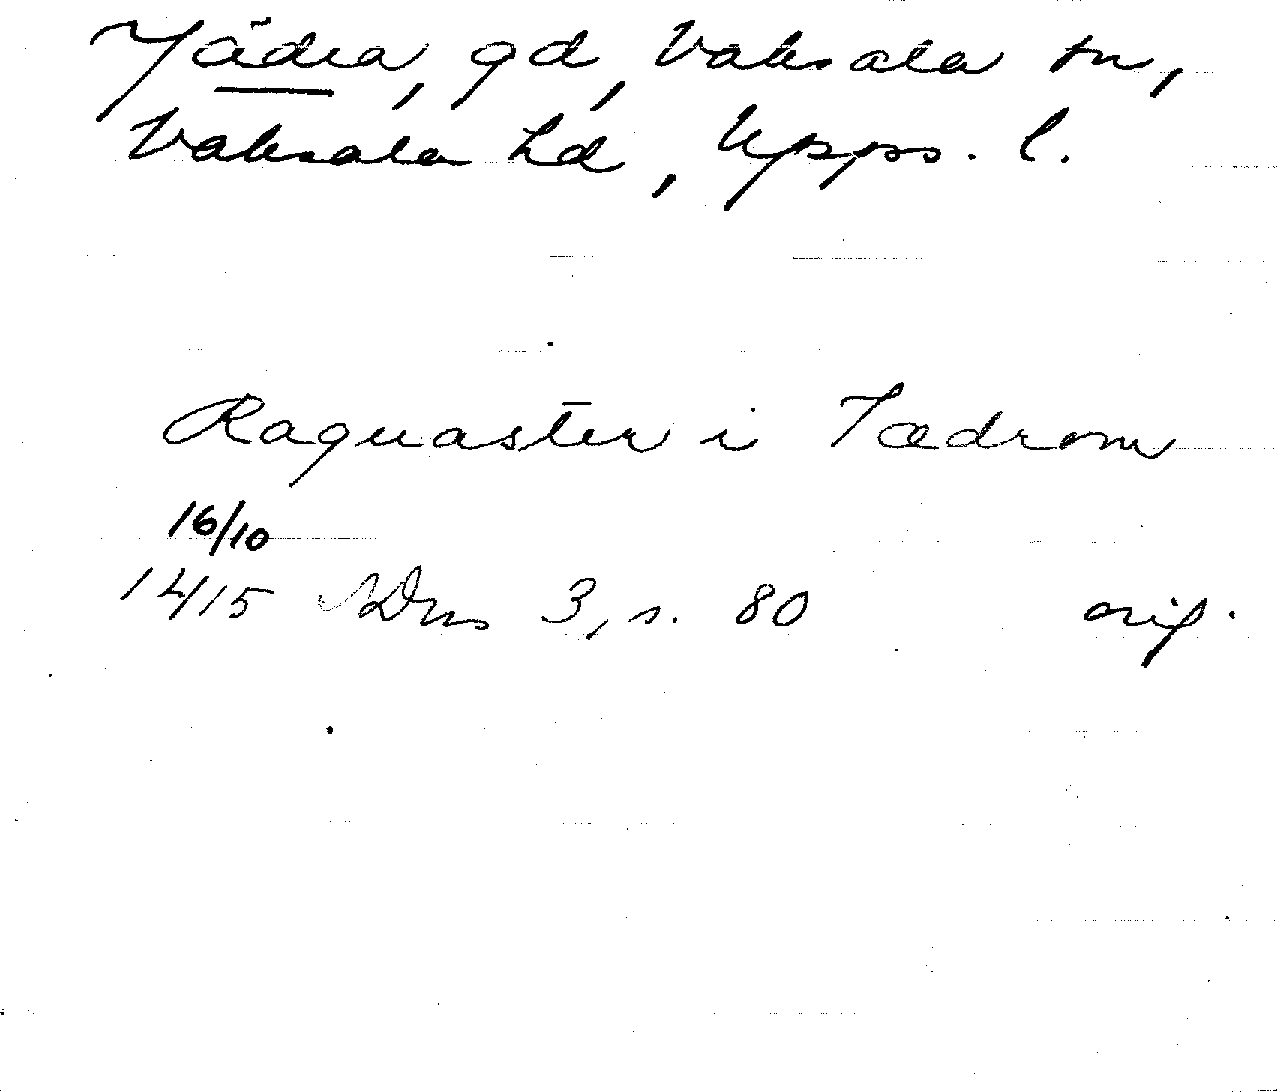 Jädra, gd, Vaksala sn,
Vaksala hd, Upps. l.
Raguaster i Iædrom
16/10
1415 SDns 3, s. 80 orig.